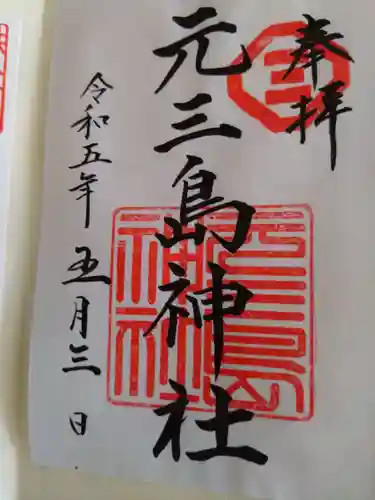 奉拝
元三島神社
令和五年五月三日
三
元三島神社